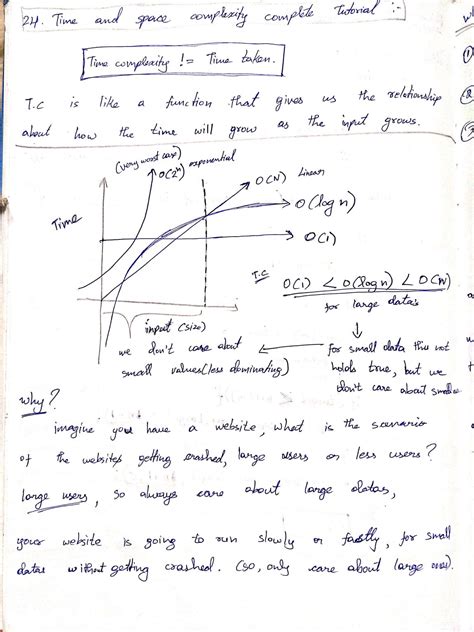 24. Time and space complexity complete Tutorial :-
Time complexity != Time taken.
T.C is like a function that gives us the relationship
about how the time will grow as the input grows.
(very worst case)
O(2ⁿ) exponential
O(N) Linear
O(log n)
O(1)
Time
T.C
O(1) < O(log n) < O(N)
for large datas
input (size)
we don't care about
small values (less dominating)
for small data this not
holds true, but we
don't care about
Why?
imagine you have a website, what is the scenario
of the websites getting crashed, large users or less users?
large users, so always care about large datas,
your website is going to run slowly or fastly, for small
datas without getting crashed. (so, only care about large ones).